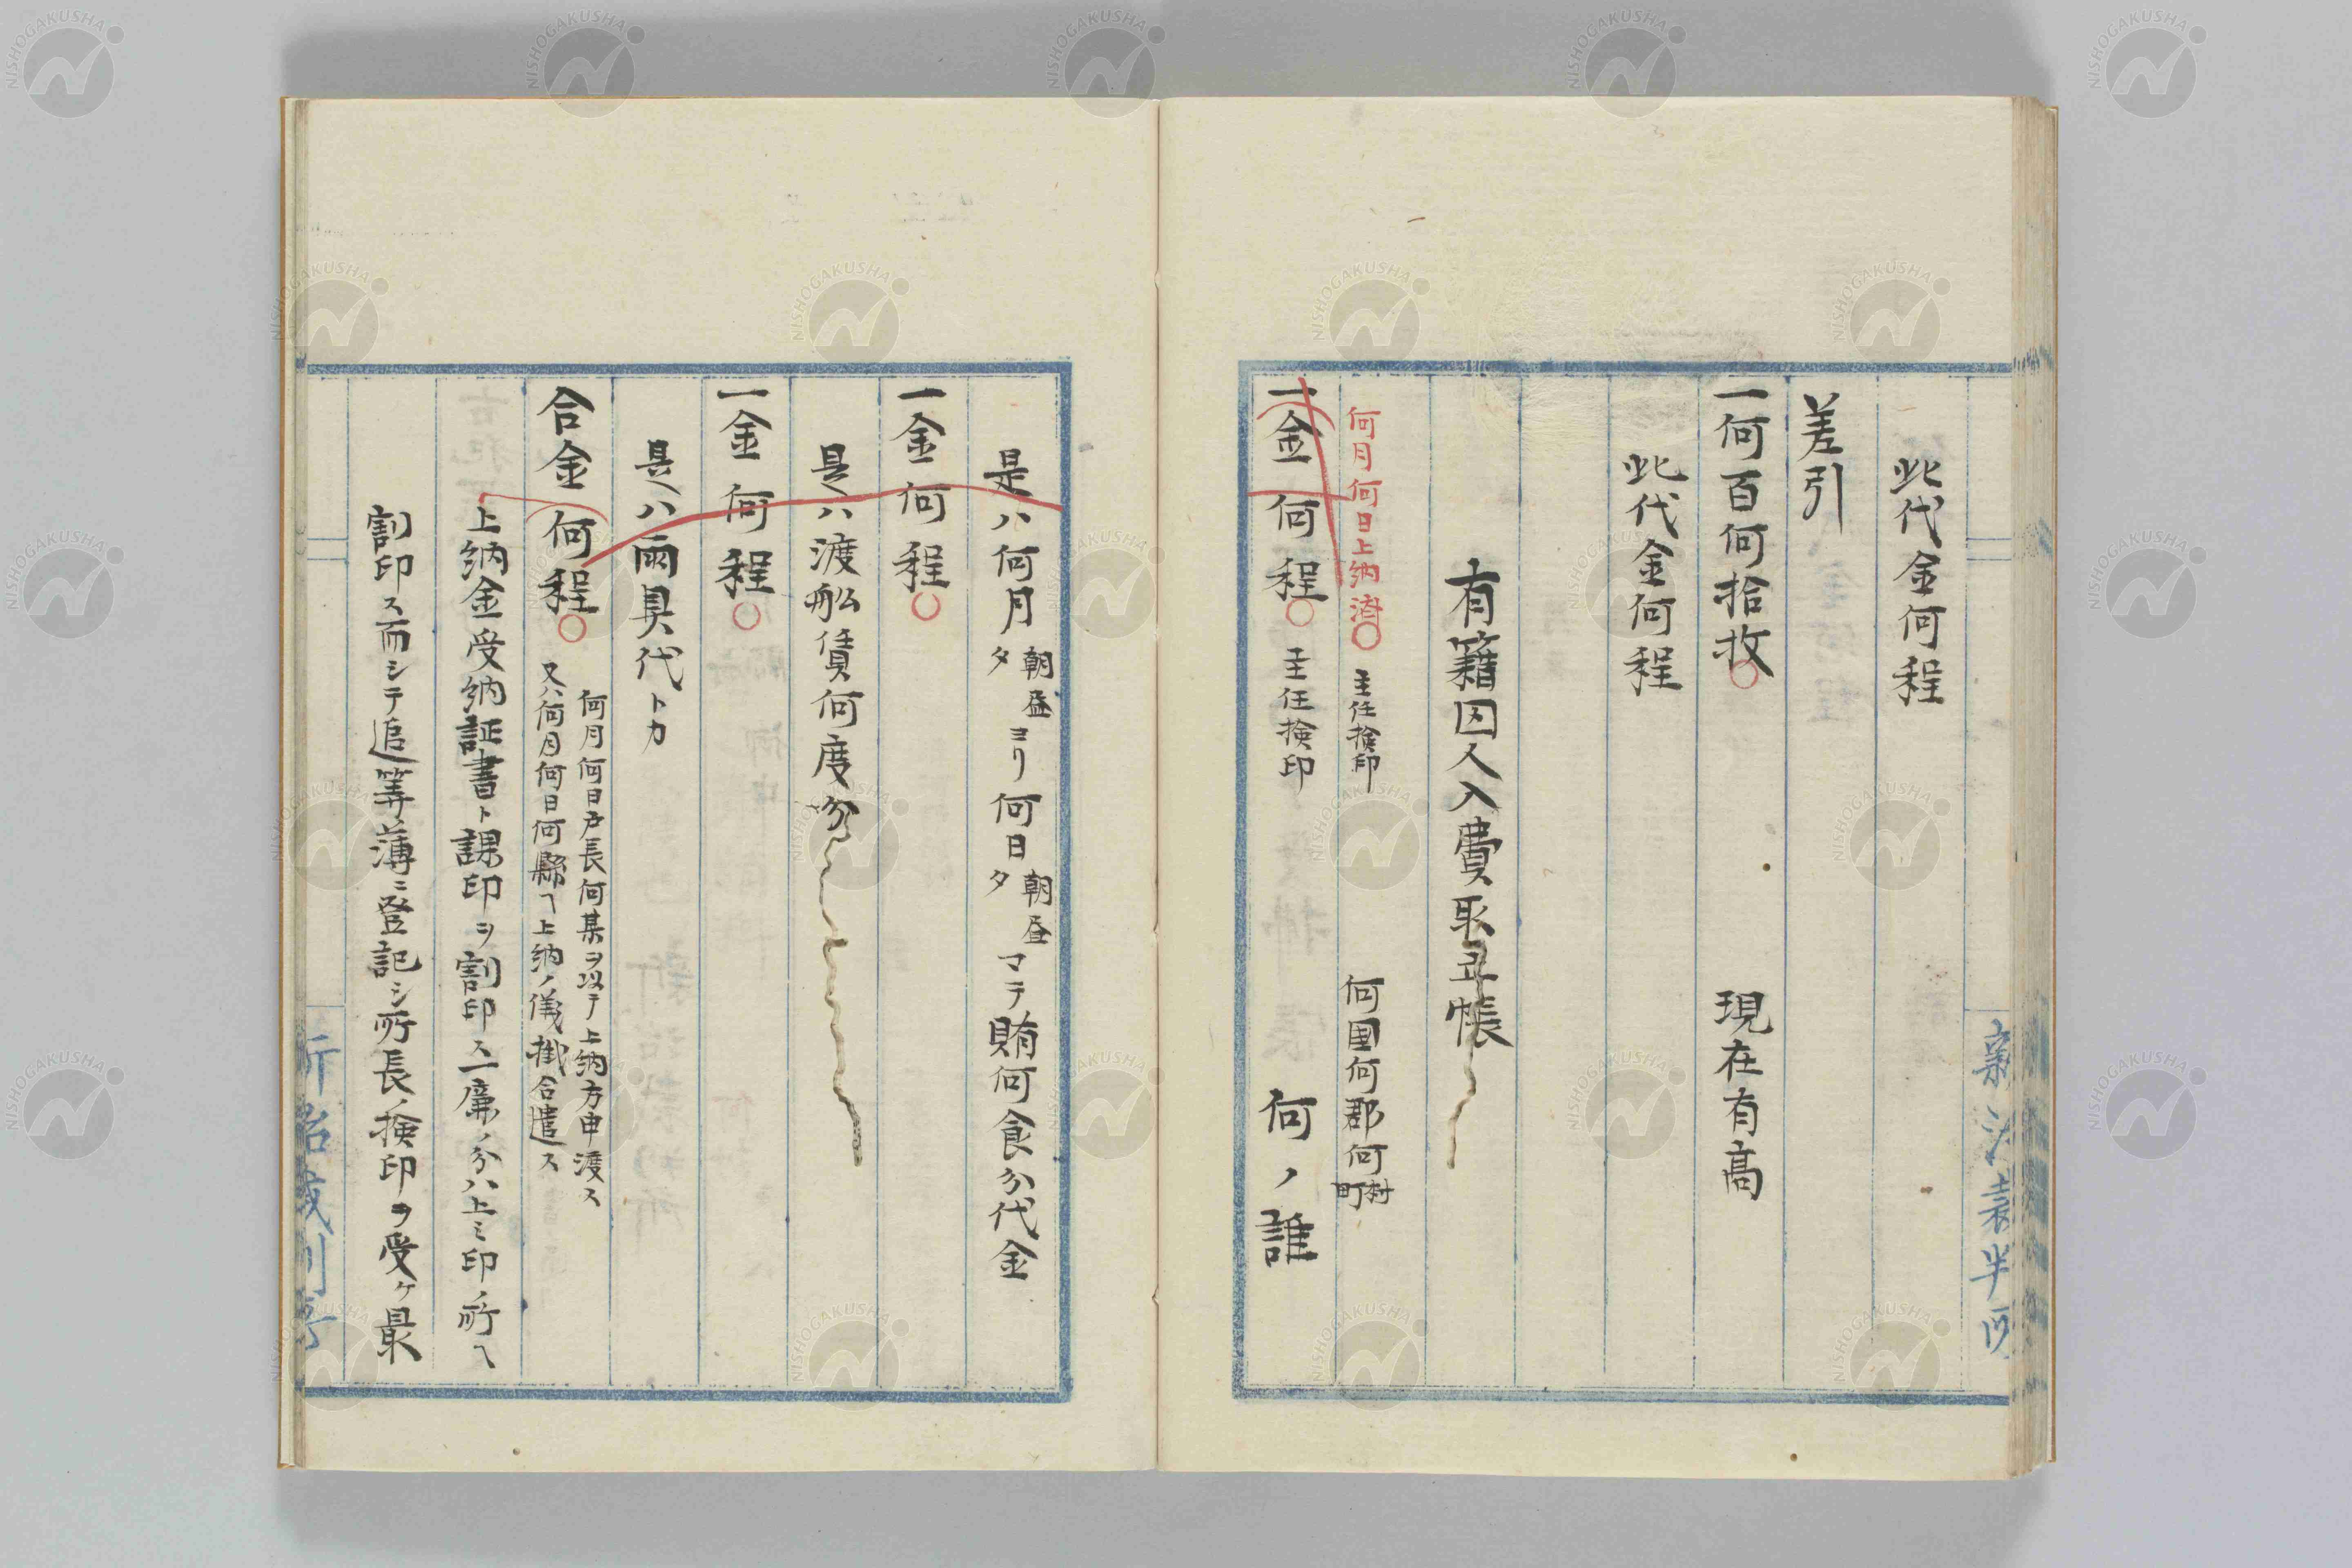 此代金何程
差引
一何百何拾枚○ 現在有高
此代金何程
有籍囚人入費取立帳
何月何日上納済○ 主任検印 何国何郡何村町
一金何程○ 主任検印 何ノ誰
是ハ何月朝昼夕ヨリ何日朝昼夕マテ賄何食分代金
一金何程○
是ハ渡船賃何度分
一金何程○
是ハ雨具代トカ
合金何程○ 何月何日戸長何某ヲ以テ上納方申渡ス
又ハ何月何日何縣ヘ上納ノ儀掛合遣ス
上納金受納証書ト課印ヲ割印ス一廉ノ分ハ上ミ印ノ所ヘ
割印ス而シテ追等薄ニ登記シ所長ノ検印ヲ受ケ最
NISHOGAKUSHA